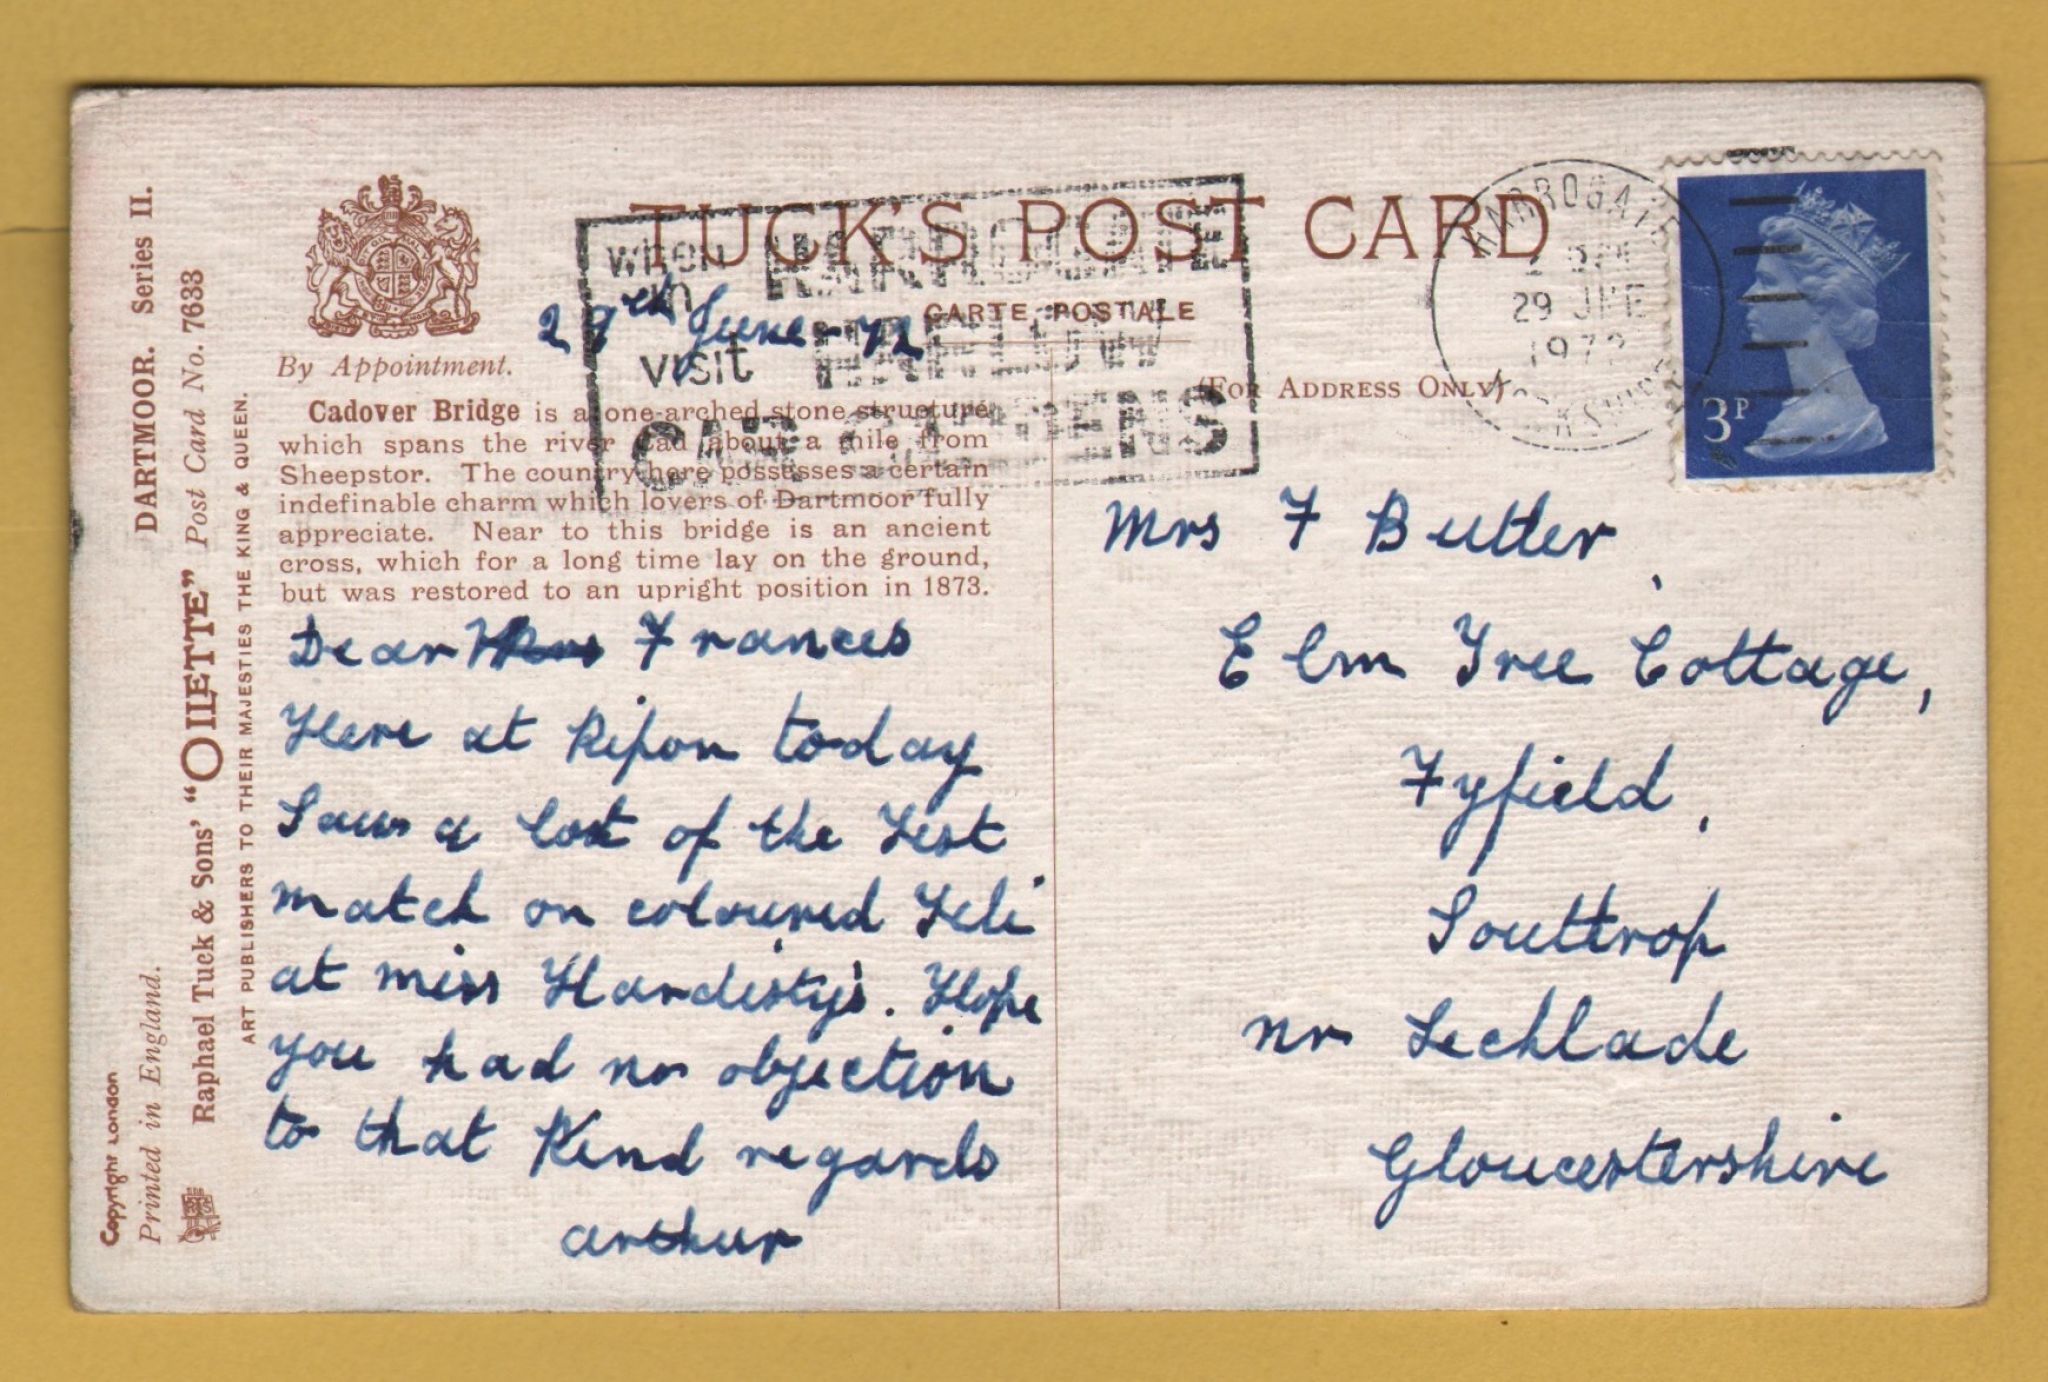 TUCK'S POST CARD
CARTE POSTALE
(FOR ADDRESS ONLY)
By Appointment.
when in HARROGATE
visit HARLOW
CAR GARDENS
HARROGATE
29 JNE
1972
YORKSHIRE
3P
June - 72
Cadover Bridge is a one-arched stone structure
which spans the river Cad about a mile from
Sheepstor. The country here possesses a certain
indefinable charm which lovers of Dartmoor fully
appreciate. Near to this bridge is an ancient
cross, which for a long time lay on the ground,
but was restored to an upright position in 1873.
Dear Frances
Here at Ripon today
Saw a lot of the Test
match on coloured Teli
at miss Hardisty's. Hope
you had no objection
to that Kind regards
arthur
Mrs F Butler,
Elm Tree Cottage,
Fyfield,
Southrop
nr Lechlade
Gloucestershire
DARTMOOR. Series II.
Raphael Tuck & Sons' "OILETTE" Post Card No. 7633
ART PUBLISHERS TO THEIR MAJESTIES THE KING & QUEEN.
Copyright London
Printed in England.